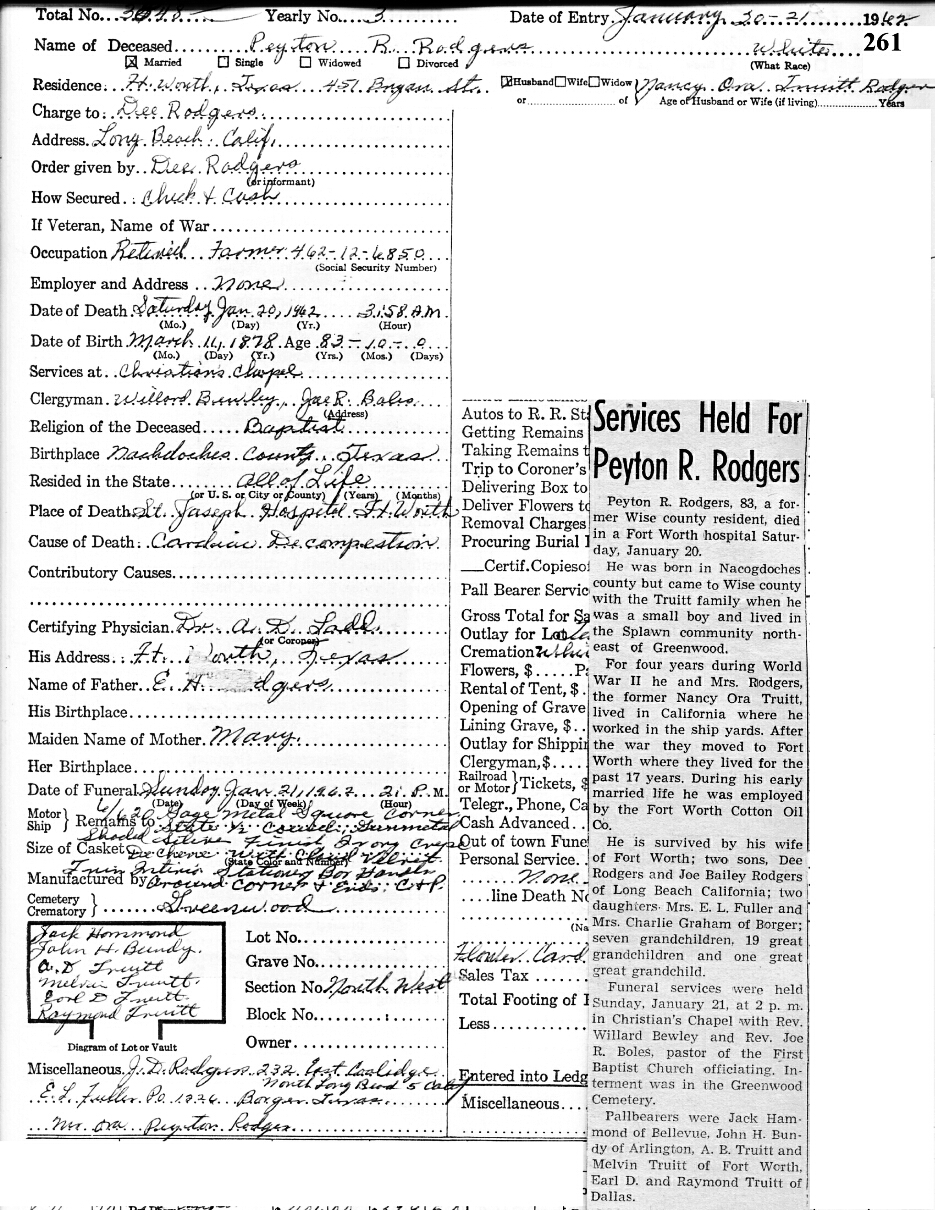 Total No. 3648 Yearly No. 3 Date of Entry January 20-21 1962
261
Name of Deceased Peyton R. Rodgers White
(What Race)
☒ Married ☐ Single ☐ Widowed ☐ Divorced
Residence: Ft. Worth, Texas 451 Bryan St. ☒ Husband ☐ Wife ☐ Widow } Nancy Ora Truitt Rodgers
or of Age of Husband or Wife (if living) Years
Charge to: Dee Rodgers
Address. Long Beach, Calif.
Order given by Dee Rodgers
(or informant)
How Secured Check & Cash
If Veteran, Name of War
Occupation Retired Farmer 462-12-6850
(Social Security Number)
Employer and Address None
Date of Death Saturday Jan. 20, 1962 3:58 A.M.
(Mo.) (Day) (Yr.) (Hour)
Date of Birth March 1878 Age 83-10-0
(Mo.) (Day) (Yr.) (Yrs.) (Mos.) (Days)
Services at Christian's Chapel
Clergyman Willard Bewley, Joe R. Boles
(Address)
Religion of the Deceased Baptist
Birthplace Nackdoches County, Texas
Resided in the State All of Life
(or U. S. or City or County) (Years) (Months)
Place of Death St. Joseph Hospital Ft. Worth
Cause of Death: Cardiac Decompestion
Contributory Causes
Certifying Physician Dr. A. D. Ladd
(or Coroner)
His Address: Ft. Worth, Texas
Name of Father E. H. dgers
His Birthplace
Maiden Name of Mother Mary
Her Birthplace
Date of Funeral Sunday Jan. 21, 1962 2 P. M.
(Date) (Day of Week) (Hour)
Motor Ship } Remains to 6/6 20 Gage Metal Square Corner
State Gunmetal
Shaded Silver Finish Ivory Crepe
Size of Casket
(State Color and Number)
Manufactured by
Around Corner & Ends
Cemetery Crematory } Greenwood
Jack Hammond
John H. Bundy
A. D. Truitt
Melvin Truitt
Earl D Truitt
Raymond Truitt
Diagram of Lot or Vault
Lot No.
Grave No.
Section No. North West
Block No.
Owner
Miscellaneous J. D. Rodgers 232 East Coolidge
North Long Beach 5 Calif
E. L. Fuller PO 1226 Borger Texas
Mrs. Ora Peyton Rodgers
Autos to R. R. St
Getting Remains
Taking Remains t
Trip to Coroner's
Delivering Box to
Deliver Flowers to
Removal Charges
Procuring Burial
Certif. Copies of
Pall Bearer Servic
Gross Total for Sa
Outlay for Lot
Cremation
Flowers, $
Rental of Tent, $
Opening of Grave
Lining Grave, $
Outlay for Shippin
Clergyman, $
Railroad or Motor } Tickets, $
Telegr., Phone, Ca
Cash Advanced
Out of town Fune
Personal Service
None
line Death No
(Na
Flower Card
Sales Tax
Total Footing of
Less
Entered into Ledg
Miscellaneous
Services Held For
Peyton R. Rodgers
Peyton R. Rodgers, 83, a for-
mer Wise county resident, died
in a Fort Worth hospital Satur-
day, January 20.
He was born in Nacogdoches
county but came to Wise county
with the Truitt family when he
was a small boy and lived in
the Splawn community north-
east of Greenwood.
For four years during World
War II he and Mrs. Rodgers,
the former Nancy Ora Truitt,
lived in California where he
worked in the ship yards. After
the war they moved to Fort
Worth where they lived for the
past 17 years. During his early
married life he was employed
by the Fort Worth Cotton Oil
Co.
He is survived by his wife
of Fort Worth; two sons, Dee
Rodgers and Joe Bailey Rodgers
of Long Beach California; two
daughters. Mrs. E. L. Fuller and
Mrs. Charlie Graham of Borger;
seven grandchildren, 19 great
grandchildren and one great
great grandchild.
Funeral services were held
Sunday, January 21, at 2 p. m.
in Christian's Chapel with Rev.
Willard Bewley and Rev. Joe
R. Boles, pastor of the First
Baptist Church officiating. In-
terment was in the Greenwood
Cemetery.
Pallbearers were Jack Ham-
mond of Bellevue, John H. Bun-
dy of Arlington, A. B. Truitt and
Melvin Truitt of Fort Worth,
Earl D. and Raymond Truitt of
Dallas.